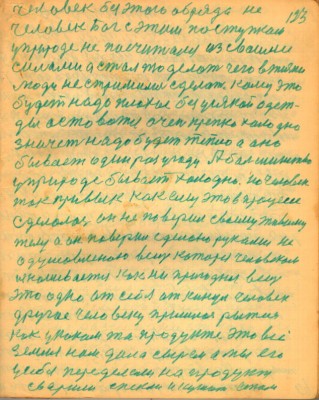 человек без этого обряда не 123
человек Бог с этим поступкам
у природе не посчитали из своими
силами а стал то делат чего в жизни
люди не стримилис сделат кому это
будет надо плохое без усякой одеж-
ды остават очен крепко холодно
значет надо будет тепло а оно
бывает один раз у году А большинство
у природе бывает холодно. но человек
так привык как ему это в процесе
сделалос он не поверил своему живому
телу а он поверил сделано руками не
одушовленого вещу которая человеком
как ни природная вещ
это одно от себя от конца человек
другая человеку пришлос
как у на продукте. Это всё
земля нам дала сырем а мы его
у себя переделали на продукт
сварили спекли и кушат стали